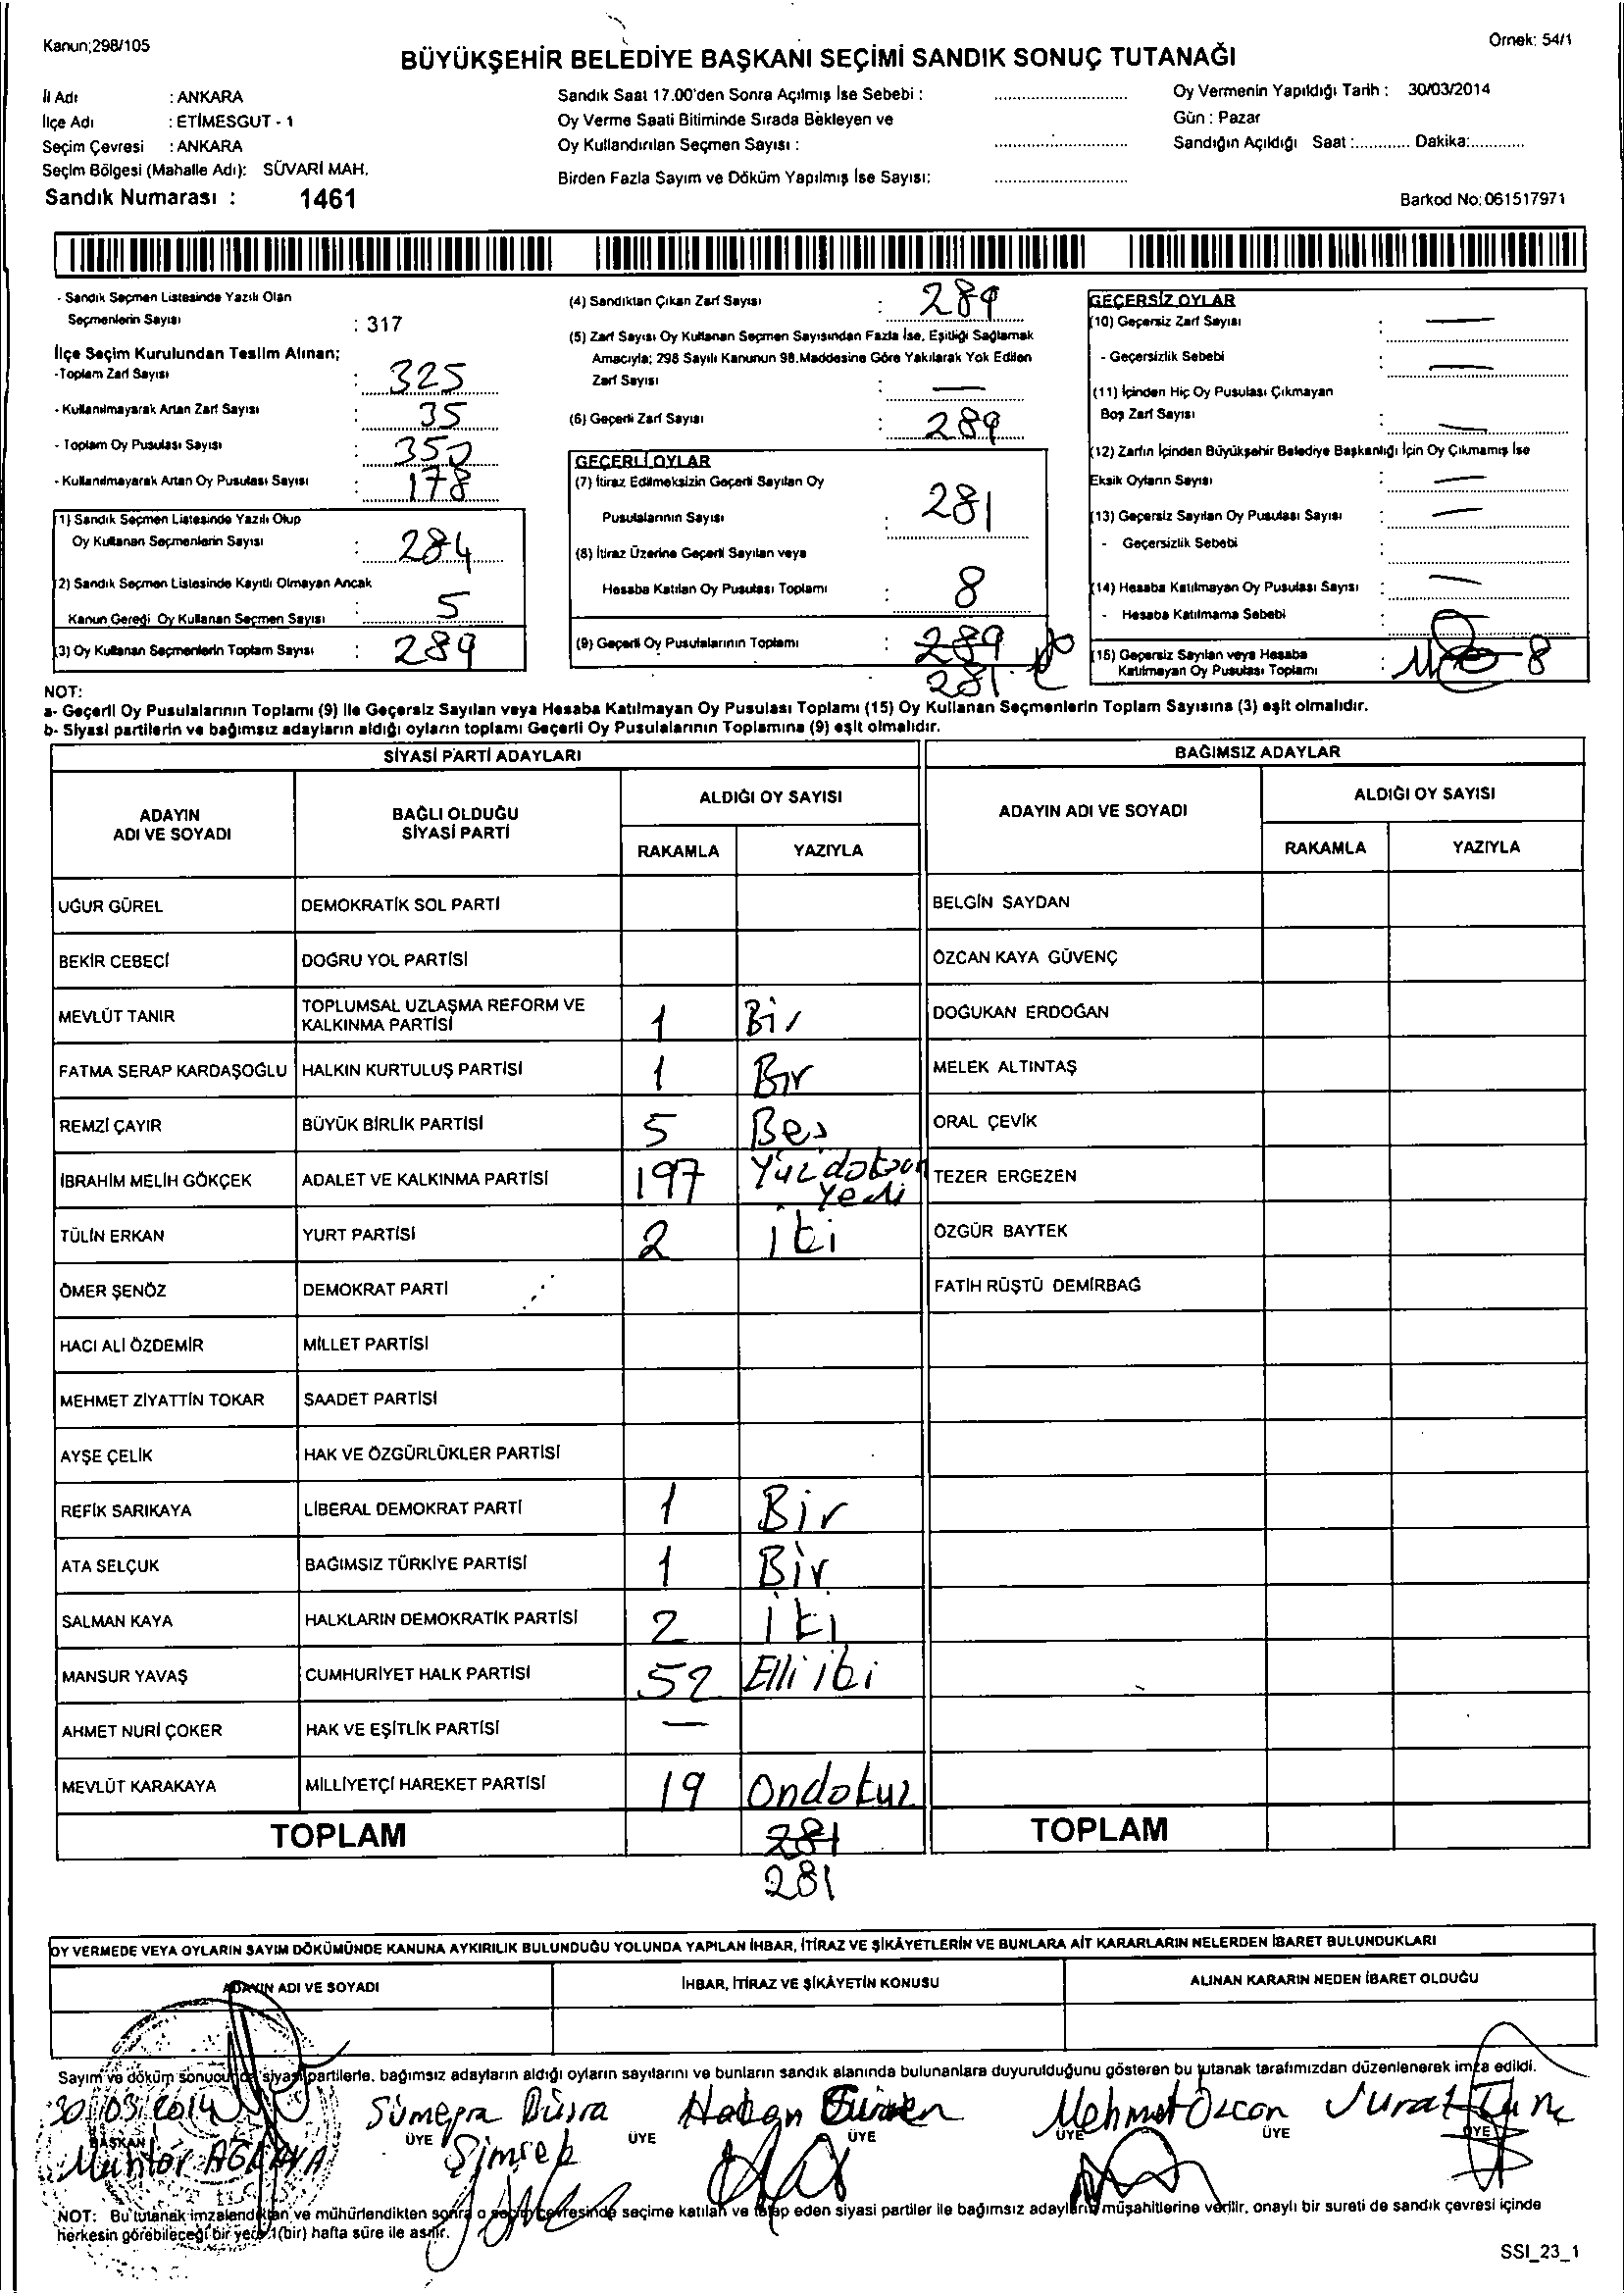 Kanun;298/105
Örnek: 54/1
BÜYÜKŞEHİR BELEDİYE BAŞKANI SEÇİMİ SANDIK SONUÇ TUTANAĞI
İl Adı : ANKARA
İlçe Adı : ETİMESGUT - 1
Seçim Çevresi : ANKARA
Seçim Bölgesi (Mahalle Adı): SÜVARİ MAH.
Sandık Numarası : 1461
Sandık Saat 17.00'den Sonra Açılmış İse Sebebi :
Oy Verme Saati Bitiminde Sırada Bekleyen ve
Oy Kullandırılan Seçmen Sayısı :
Birden Fazla Sayım ve Döküm Yapılmış İse Sayısı:
Oy Vermenin Yapıldığı Tarih : 30/03/2014
Gün : Pazar
Sandığın Açıldığı Saat :............ Dakika:............
Barkod No: 061517971
- Sandık Seçmen Listesinde Yazılı Olan
Seçmenlerin Sayısı : 317
İlçe Seçim Kurulundan Teslim Alınan;
-Toplam Zarf Sayısı : 325
- Kullanılmayarak Artan Zarf Sayısı : 35
- Toplam Oy Pusulası Sayısı : 350
- Kullanılmayarak Artan Oy Pusulası Sayısı : 178
(1) Sandık Seçmen Listesinde Yazılı Olup
Oy Kullanan Seçmenlerin Sayısı : 284
(2) Sandık Seçmen Listesinde Kayıtlı Olmayan Ancak
Kanun Gereği Oy Kullanan Seçmen Sayısı : 5
(3) Oy Kullanan Seçmenlerin Toplam Sayısı : 289
(4) Sandıktan Çıkan Zarf Sayısı : 289
(5) Zarf Sayısı Oy Kullanan Seçmen Sayısından Fazla İse, Eşitliği Sağlamak
Amacıyla; 298 Sayılı Kanunun 98.Maddesine Göre Yakılarak Yok Edilen
Zarf Sayısı : —
(6) Geçerli Zarf Sayısı : 289
GEÇERLİ OYLAR
(7) İtiraz Edilmeksizin Geçerli Sayılan Oy
Pusulalarının Sayısı : 281
(8) İtiraz Üzerine Geçerli Sayılan veya
Hesaba Katılan Oy Pusulası Toplamı : 8
(9) Geçerli Oy Pusulalarının Toplamı : 289
281
GEÇERSİZ OYLAR
(10) Geçersiz Zarf Sayısı : —
- Geçersizlik Sebebi : —
(11) İçinden Hiç Oy Pusulası Çıkmayan
Boş Zarf Sayısı : —
(12) Zarfın İçinden Büyükşehir Belediye Başkanlığı İçin Oy Çıkmamış İse
Eksik Oyların Sayısı : —
(13) Geçersiz Sayılan Oy Pusulası Sayısı : —
- Geçersizlik Sebebi :
(14) Hesaba Katılmayan Oy Pusulası Sayısı : —
- Hesaba Katılmama Sebebi :
(15) Geçersiz Sayılan veya Hesaba
Katılmayan Oy Pusulası Toplamı : 8
NOT:
a- Geçerli Oy Pusulalarının Toplamı (9) ile Geçersiz Sayılan veya Hesaba Katılmayan Oy Pusulası Toplamı (15) Oy Kullanan Seçmenlerin Toplam Sayısına (3) eşit olmalıdır.
b- Siyasi partilerin ve bağımsız adayların aldığı oyların toplamı Geçerli Oy Pusulalarının Toplamına (9) eşit olmalıdır.
SİYASİ PARTİ ADAYLARI
ADAYIN ADI VE SOYADI
BAĞLI OLDUĞU SİYASİ PARTİ
ALDIĞI OY SAYISI
RAKAMLA YAZIYLA
UĞUR GÜREL DEMOKRATİK SOL PARTİ
BEKİR CEBECİ DOĞRU YOL PARTİSİ
MEVLÜT TANIR TOPLUMSAL UZLAŞMA REFORM VE KALKINMA PARTİSİ 1 Bir
FATMA SERAP KARDAŞOĞLU HALKIN KURTULUŞ PARTİSİ 1 Bir
REMZİ ÇAYIR BÜYÜK BİRLİK PARTİSİ 5 Beş
İBRAHİM MELİH GÖKÇEK ADALET VE KALKINMA PARTİSİ 197 Yüzdoksan yedi
TÜLİN ERKAN YURT PARTİSİ 2 iki
ÖMER ŞENÖZ DEMOKRAT PARTİ
HACI ALİ ÖZDEMİR MİLLET PARTİSİ
MEHMET ZİYATTİN TOKAR SAADET PARTİSİ
AYŞE ÇELİK HAK VE ÖZGÜRLÜKLER PARTİSİ
REFİK SARIKAYA LİBERAL DEMOKRAT PARTİ 1 Bir
ATA SELÇUK BAĞIMSIZ TÜRKİYE PARTİSİ 1 Bir
SALMAN KAYA HALKLARIN DEMOKRATİK PARTİSİ 2 iki
MANSUR YAVAŞ CUMHURİYET HALK PARTİSİ 52 Elli iki
AHMET NURİ ÇOKER HAK VE EŞİTLİK PARTİSİ —
MEVLÜT KARAKAYA MİLLİYETÇİ HAREKET PARTİSİ 19 Ondokuz
TOPLAM 281
281
BAĞIMSIZ ADAYLAR
ADAYIN ADI VE SOYADI
ALDIĞI OY SAYISI
RAKAMLA YAZIYLA
BELGİN SAYDAN
ÖZCAN KAYA GÜVENÇ
DOĞUKAN ERDOĞAN
MELEK ALTINTAŞ
ORAL ÇEVİK
TEZER ERGEZEN
ÖZGÜR BAYTEK
FATİH RÜŞTÜ DEMİRBAĞ
TOPLAM
OY VERMEDE VEYA OYLARIN SAYIM DÖKÜMÜNDE KANUNA AYKIRILIK BULUNDUĞU YOLUNDA YAPILAN İHBAR, İTİRAZ VE ŞİKÂYETLERİN VE BUNLARA AİT KARARLARIN NELERDEN İBARET BULUNDUKLARI
ADAYIN ADI VE SOYADI
İHBAR, İTİRAZ VE ŞİKÂYETİN KONUSU
ALINAN KARARIN NEDEN İBARET OLDUĞU
Sayım ve döküm sonucunda siyasi partilerle, bağımsız adayların aldığı oyların sayılarını ve bunların sandık alanında bulunanlara duyurulduğunu gösteren bu tutanak tarafımızdan düzenlenerek imza edildi.
30/03/2014 Sümeyra Büşra Hakan Mehmet Özcan Murat Tunç
BAŞKAN ÜYE ÜYE ÜYE ÜYE ÜYE ÜYE
Muhtar Şimşek
NOT: Bu tutanak imzalandıktan ve mühürlendikten sonra o seçim çevresinde seçime katılan ve talep eden siyasi partiler ile bağımsız adayların müşahitlerine verilir, onaylı bir sureti de sandık çevresi içinde
herkesin görebileceği bir yere 1(bir) hafta süre ile asılır.
SSI_23_1